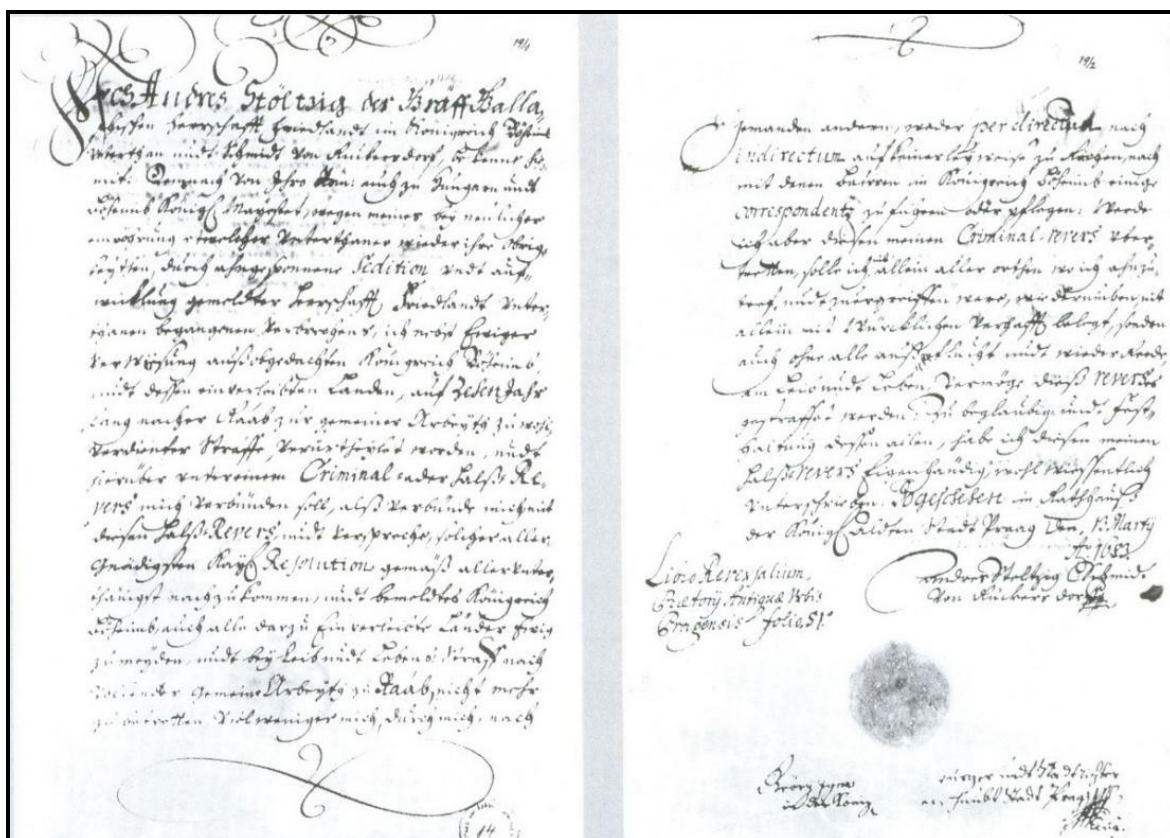 19/1
Ich Andres Stöltzig der Gräff Galla-
schissen Herrschafft Friedlandt im Königreich Böheimb
Unterthan undt Schmidt von Rückersdorf, bekenne hie-
mit: Demnach von Ihro Kön: auch zu Hungarn undt
Böheimb Königl. Mayestet, wegen meines bey neulicher
empörung etwelcher Unterthaner wieder ihre Obrig-
keitten, durch angesponnene Sedition undt auf-
wicklung gemeldter Herrschafft Friedlandt Unter-
thanen begangenen Verbrechens, ich nebst Ewiger
Verweisung auß obgedachten Königreich Böheimb,
undt dessen einverleibten Landen, auf Zehen Jahr
lang nacher Raab zur gemeiner Arbeyth zu wohl
verdienter Straffe verurtheilet worden, undt
hierüber unter einem Criminal- oder Halß-Re-
vers mich verbünden soll, alß verbünde mich mit
diesen Halß-Revers, undt verspreche, solcher aller
Gnädigsten Kayl. Resolution gemäß allerunter-
thänigst nachzukommen, undt bemeldtes Königreich
Böheimb, auch alle darzu Einverleibte Länder Ewig
zu meyden, undt bey Leib undt Lebens Straff nach
vollendter gemeiner Arbeyth zu Raab, nicht mehr
zu betretten viel weniger mich, durch mich, nach
14
19/2
jemanden andern, weder per directum, nach
indirectum auf keinerley weise zu rächen, nach
mit denen Bauren im Königreich Böheimb einige
correspondentz zu führen oder pflegen: Werde
ich aber diesen meinen Criminal-revers über-
tretten, solle ich allein aller orthen wo ich anzu-
tref. undt zuergreiffen were, nicht
allein mit Würcklichen Verhafft belegt, sondern
auch ohne alle außflucht undt wieder Reede,
am Leib undt Leben, vermöge dieß revers
gestraffet werden. Zu beglaubig: undt Fest-
haltung dessen allen, habe ich diesen meinen
Halß-revers Eigenhändig, wohl wissentlich
unterschrieben. So geschehen in Rathhauß
der Königl. Alten Stadt Praag den, Marty
Ao. 1683.
Libro Reversalium
Prætorij Antiquæ Urbis
Pragensis folio, 51.
Andres Steltzig Schmidt
von Rückersdorf
Georg
in der König
burger undt Stadtrichter
Haubt Stadt Prag